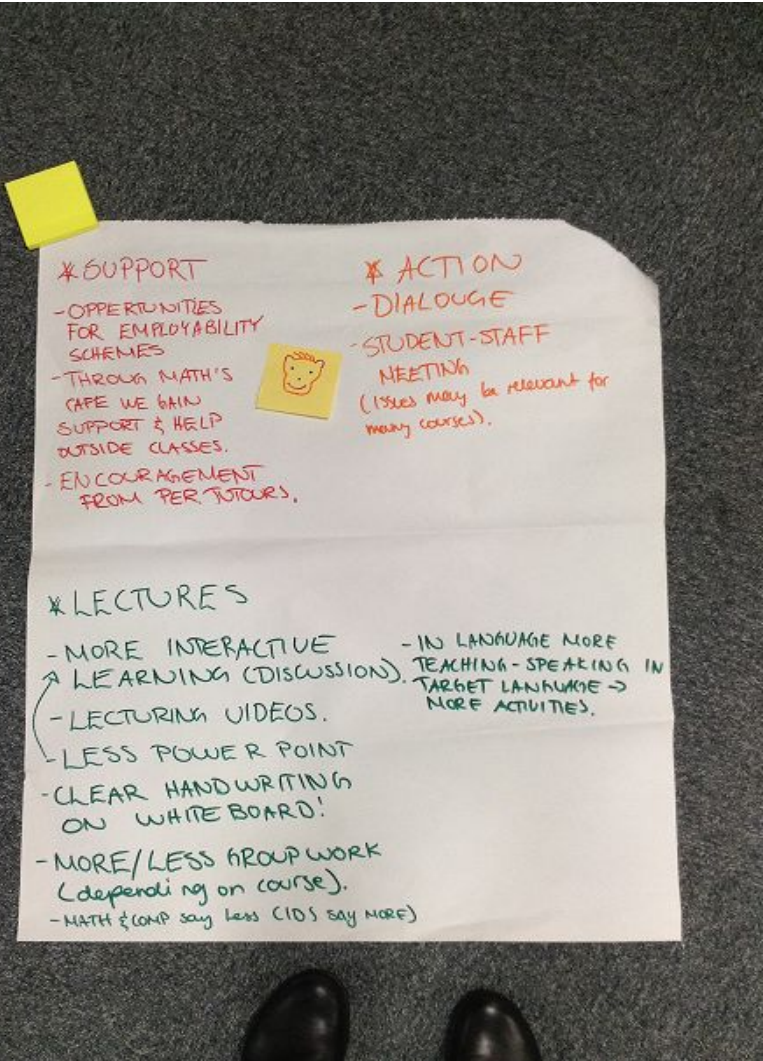 * SUPPORT
- OPPERTUNITIES
FOR EMPLOYABILITY
SCHEMES
- THROUG MATH'S
CAFE WE GAIN
SUPPORT & HELP
OUTSIDE CLASSES.
- ENCOURAGEMENT
FROM PER TUTOURS.
* ACTION
- DIALOUGE
- STUDENT-STAFF
MEETING
(issues may be relevant for
many courses).
* LECTURES
- MORE INTERACTIVE
LEARNING (DISCUSSION).
- LECTURING VIDEOS.
- LESS POWER POINT
- CLEAR HANDWRITING
ON WHITEBOARD!
- MORE/LESS GROUPWORK
(depending on course).
- MATH & COMP say Less (IDS say MORE)
- IN LANGUAGE MORE
TEACHING-SPEAKING IN
TARGET LANGUAGE →
MORE ACTIVITIES.